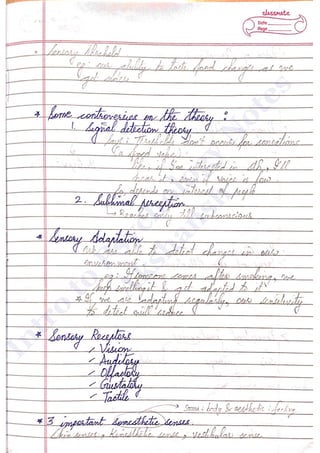 classmate
Date
Page
Sensory threshold
eg: our ability to taste food changes as we
get older
* Some controversies on the theory :
1. Signal detection theory
says : thresholds don't occurs for sensations
I'm interested in I'll
hear it even if voice is low
So, depends on interest of people
2. Subliminal perception
Reaches only till subconscious
* Sensory Adaptation
are able to detect changes in our
environment.
eg: If someone comes after smoking, we
keep smelling it & get adapted to it
* If we are badapting regularly, our sensitivity
to detect will reduce
* Sensory Receptors
✓ Vision
✓ Auditory
✓ Olfactory
✓ Gustatory
✓ Tactile
→ Soma : body & aesthetic : feeling
* 3 important somesthetic senses.
Skin senses, Kinesthetic sense, vestibular sense
Intro to Notes